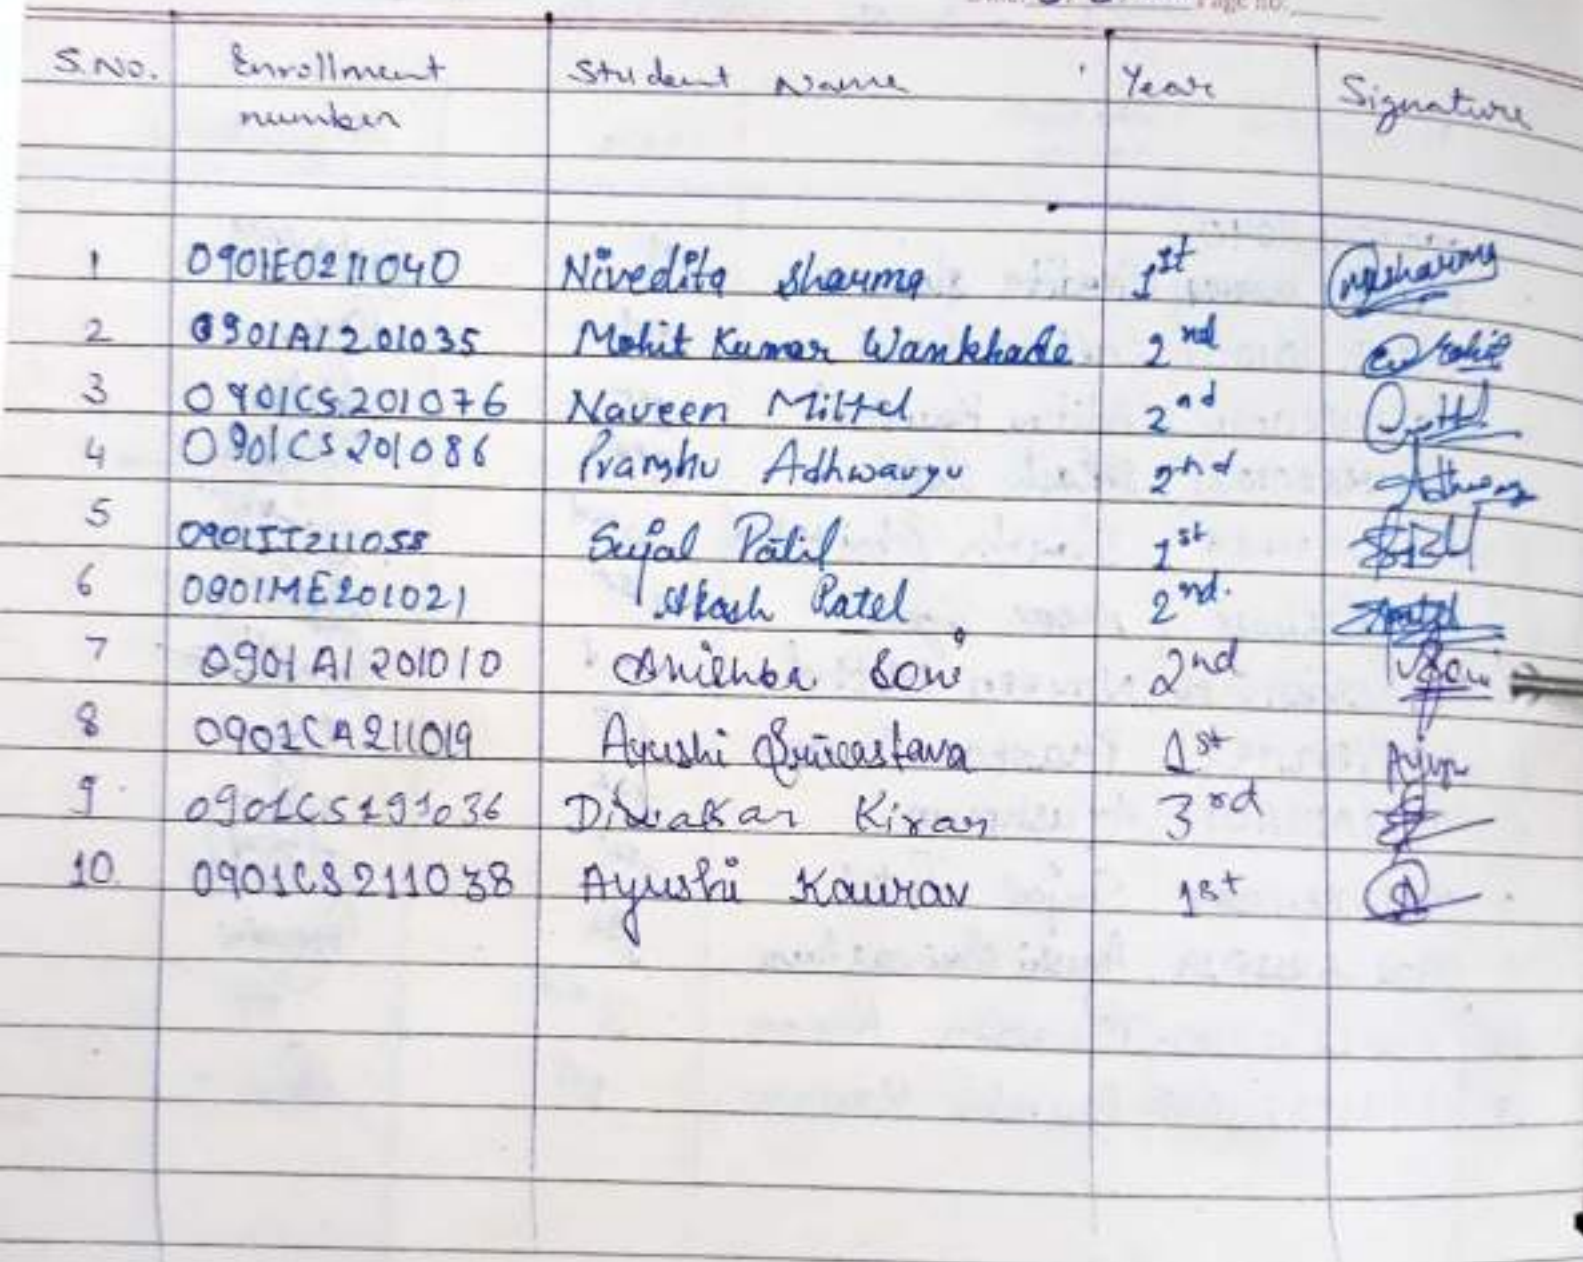 Page no.
S.No. Enrollment number Student Name Year Signature
1 0901EO211040 Nivedita Sharma 1st
2 0901AI201035 Mohit Kumar Wankhade 2nd Mohit
3 0901CS201076 Naveen Mittal 2nd
4 0901CS201086 Pranshu Adhwaryu 2nd
5 0901IT211058 Sujal Patil 1st
6 0901ME201021 Akash Patel 2nd.
7 0901AI201010 Soni 2nd Soni
8 0901CA211019 Ayushi Srivastava 1st
9 0901CS191036 Diwakar Kiran 3rd
10. 0901CS211038 Ayushi Kaurav 1st